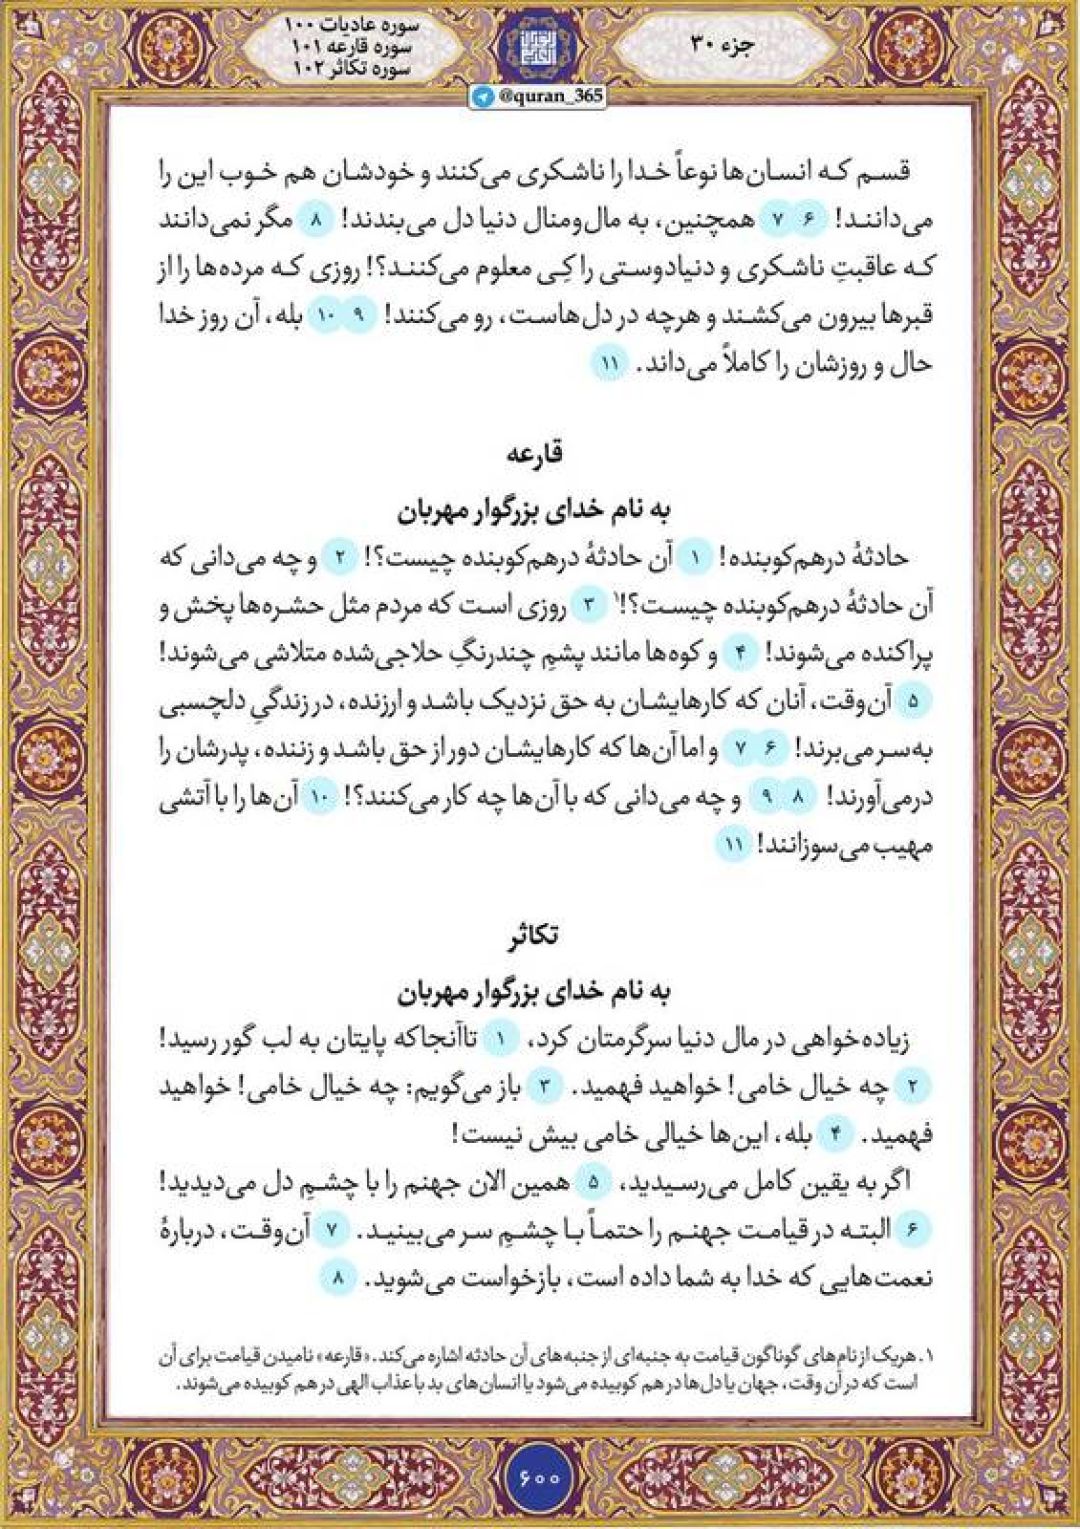 جزء ۳۰
سوره عادیات ۱۰۰
سوره قارعه ۱۰۱
سوره تکاثر ۱۰۲
@quran_365
قسم که انسان‌ها نوعاً خدا را ناشکری می‌کنند و خودشان هم خوب این را
می‌دانند! ۶ ۷ همچنین، به مال‌ومنال دنیا دل می‌بندند! ۸ مگر نمی‌دانند
که عاقبتِ ناشکری و دنیادوستی را کِی معلوم می‌کنند؟! روزی که مرده‌ها را از
قبرها بیرون می‌کشند و هرچه در دل‌هاست، رو می‌کنند! ۹ ۱۰ بله، آن روز خدا
حال و روزشان را کاملاً می‌داند. ۱۱
قارعه
به نام خدای بزرگوار مهربان
حادثهٔ درهم‌کوبنده! ۱ آن حادثهٔ درهم‌کوبنده چیست؟! ۲ و چه می‌دانی که
آن حادثهٔ درهم‌کوبنده چیست؟!۱ ۳ روزی است که مردم مثل حشره‌ها پخش و
پراکنده می‌شوند! ۴ و کوه‌ها مانند پشمِ چندرنگِ حلاجی‌شده متلاشی می‌شوند!
۵ آن‌وقت، آنان که کارهایشان به حق نزدیک باشد و ارزنده، در زندگیِ دلچسبی
به‌سر می‌برند! ۶ ۷ و اما آن‌ها که کارهایشان دور از حق باشد و زننده، پدرشان را
درمی‌آورند! ۸ ۹ و چه می‌دانی که با آن‌ها چه کار می‌کنند؟! ۱۰ آن‌ها را با آتشی
مهیب می‌سوزانند! ۱۱
تکاثر
به نام خدای بزرگوار مهربان
زیاده‌خواهی در مال دنیا سرگرمتان کرد، ۱ تاآنجاکه پایتان به لب گور رسید!
۲ چه خیال خامی! خواهید فهمید. ۳ باز می‌گویم: چه خیال خامی! خواهید
فهمید. ۴ بله، این‌ها خیالی خامی بیش نیست!
اگر به یقین کامل می‌رسیدید، ۵ همین الان جهنم را با چشمِ دل می‌دیدید!
۶ البته در قیامت جهنم را حتماً با چشمِ سر می‌بینید. ۷ آن‌وقت، دربارهٔ
نعمت‌هایی که خدا به شما داده است، بازخواست می‌شوید. ۸
۱. هریک از نام‌های گوناگون قیامت به جنبه‌ای از جنبه‌های آن حادثه اشاره می‌کند. «قارعه» نامیدن قیامت برای آن
است که در آن وقت، جهان یا دل‌ها در هم کوبیده می‌شود یا انسان‌های بد با عذاب الهی در هم کوبیده می‌شوند.
۶۰۰